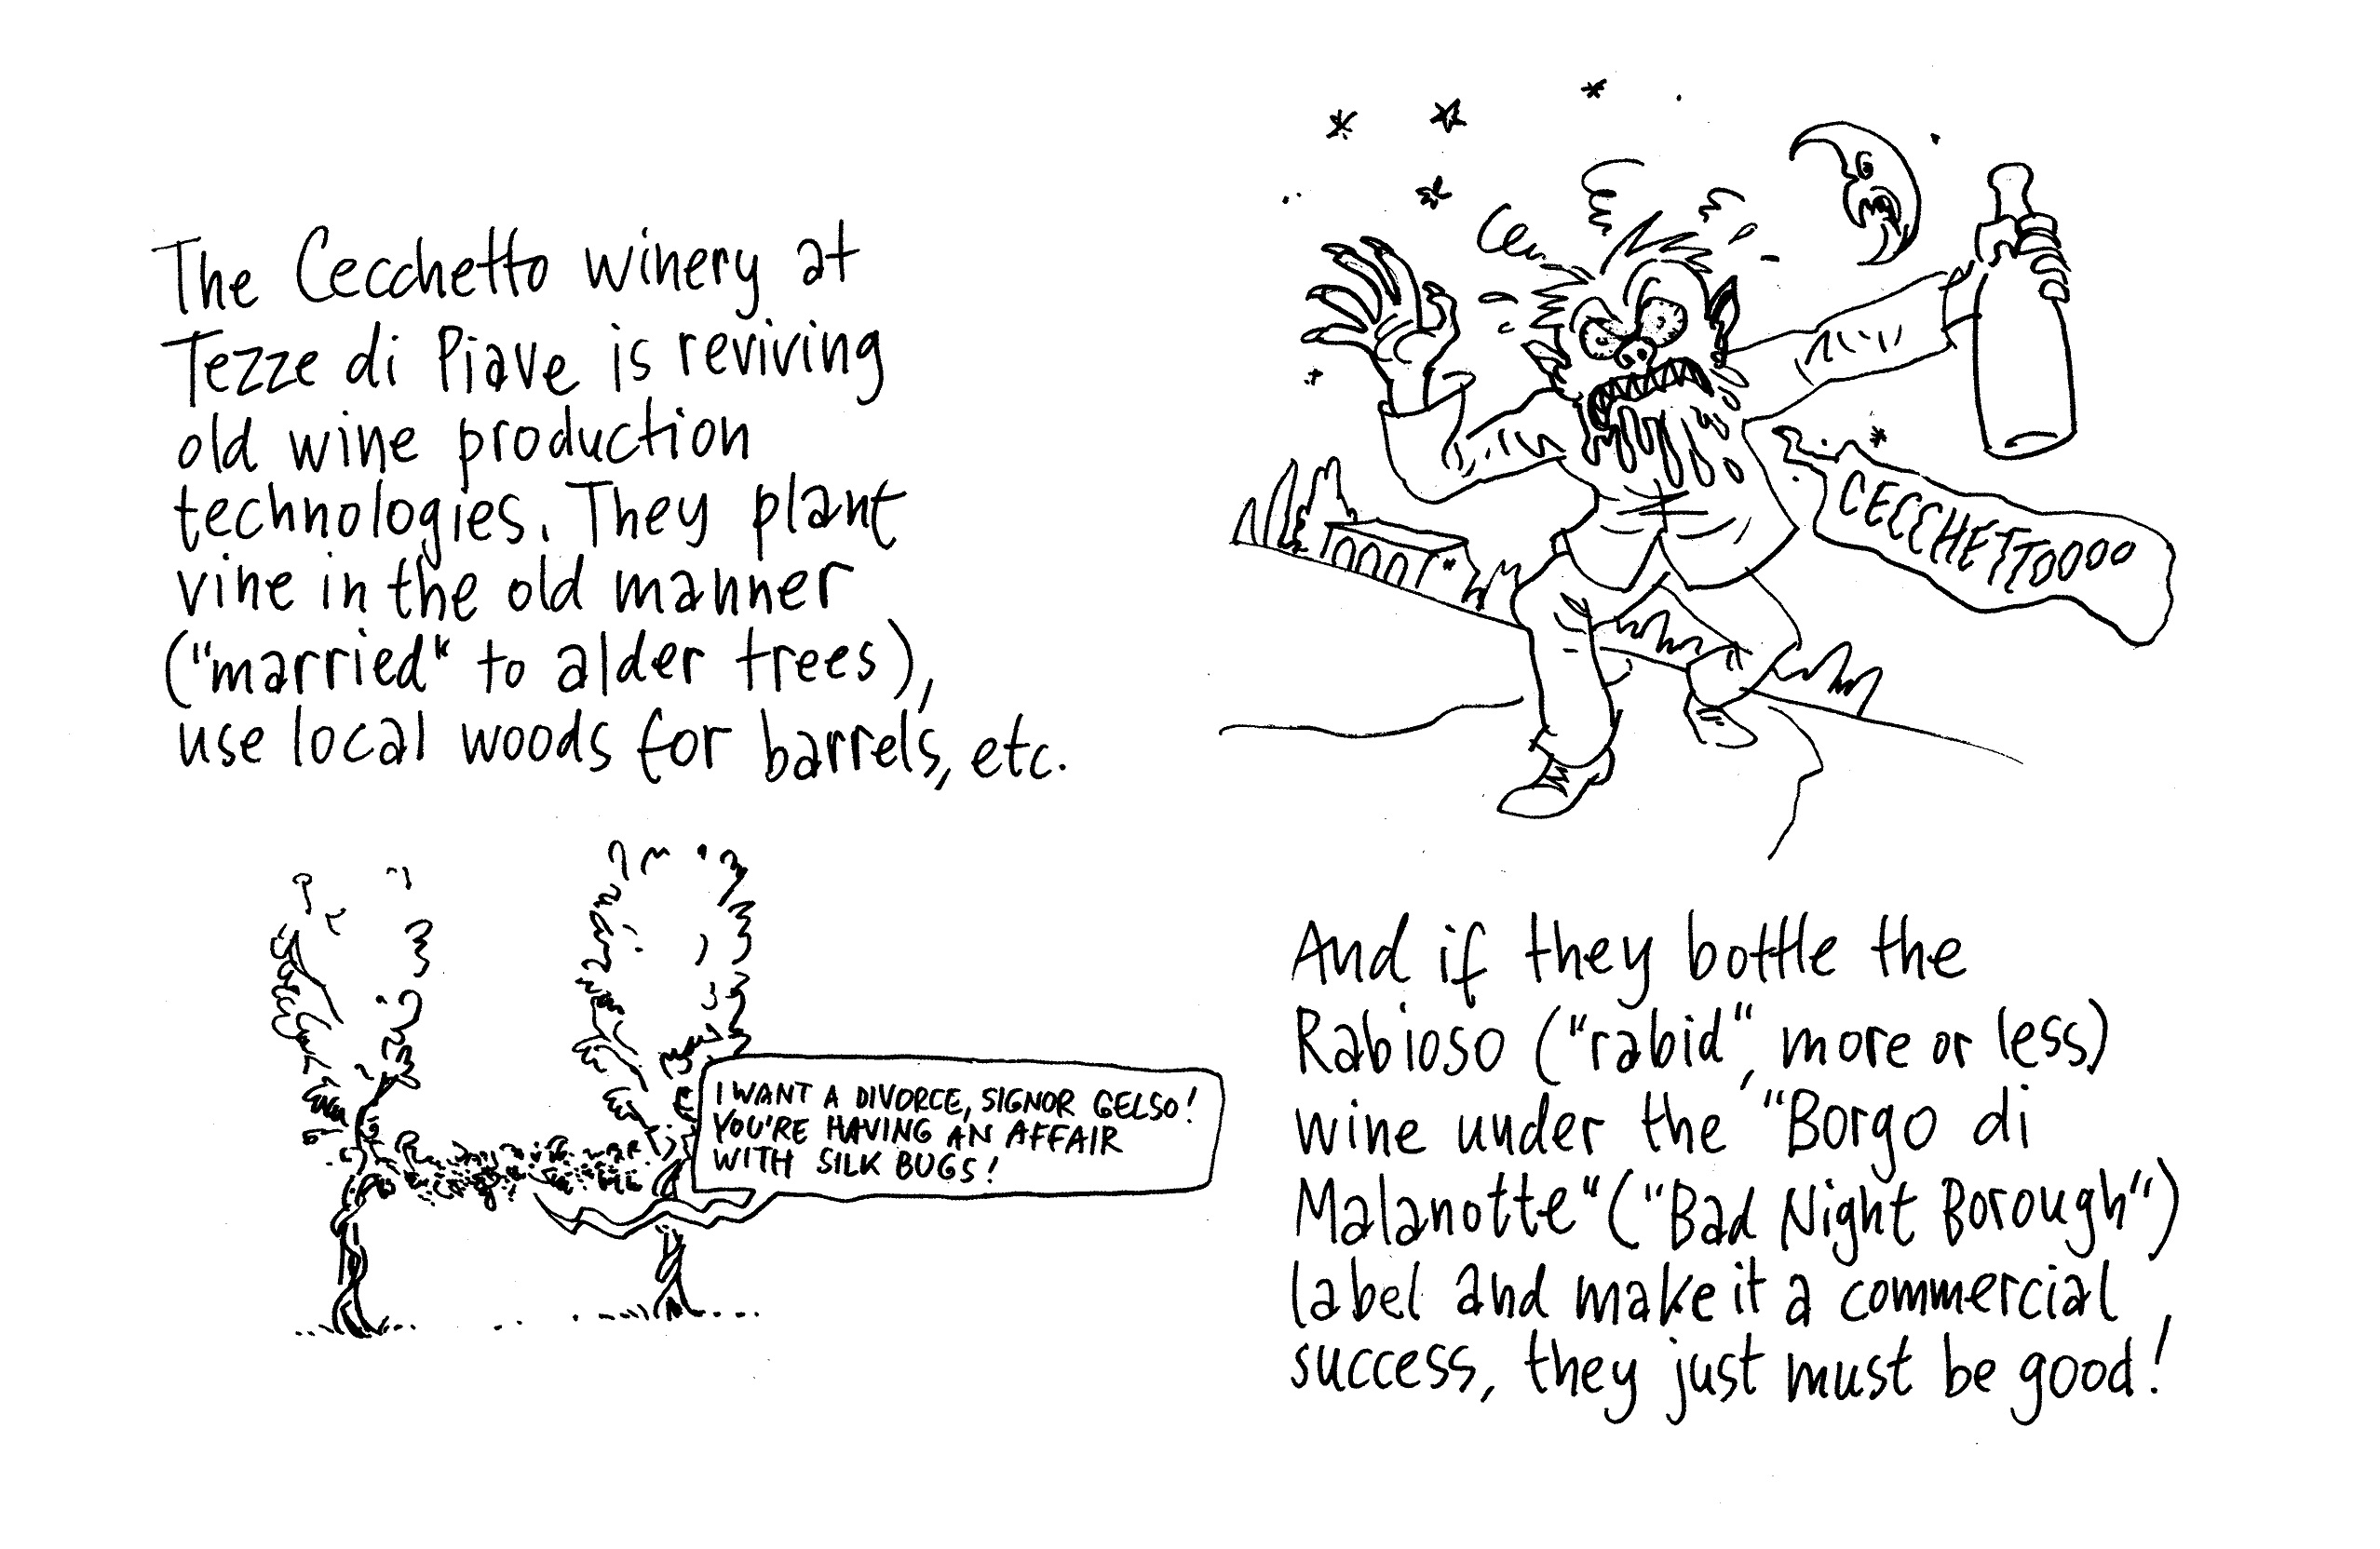 The Cecchetto winery at
Tezze di Piave is reviving
old wine production
technologies. They plant
vine in the old manner
("married" to alder trees),
use local woods for barrels, etc.
I WANT A DIVORCE, SIGNOR GELSO!
YOU'RE HAVING AN AFFAIR
WITH SILK BUGS!
CECCHETTOOOO
And if they bottle the
Rabioso ("rabid", more or less)
wine under the "Borgo di
Malanotte" ("Bad Night Borough")
label and make it a commercial
success, they just must be good!